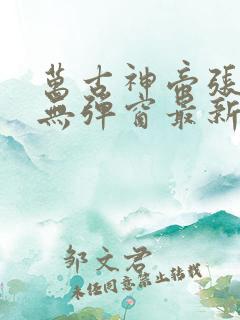 萬古神帝張
無彈窗最新
邹文君
未经同意禁止转载